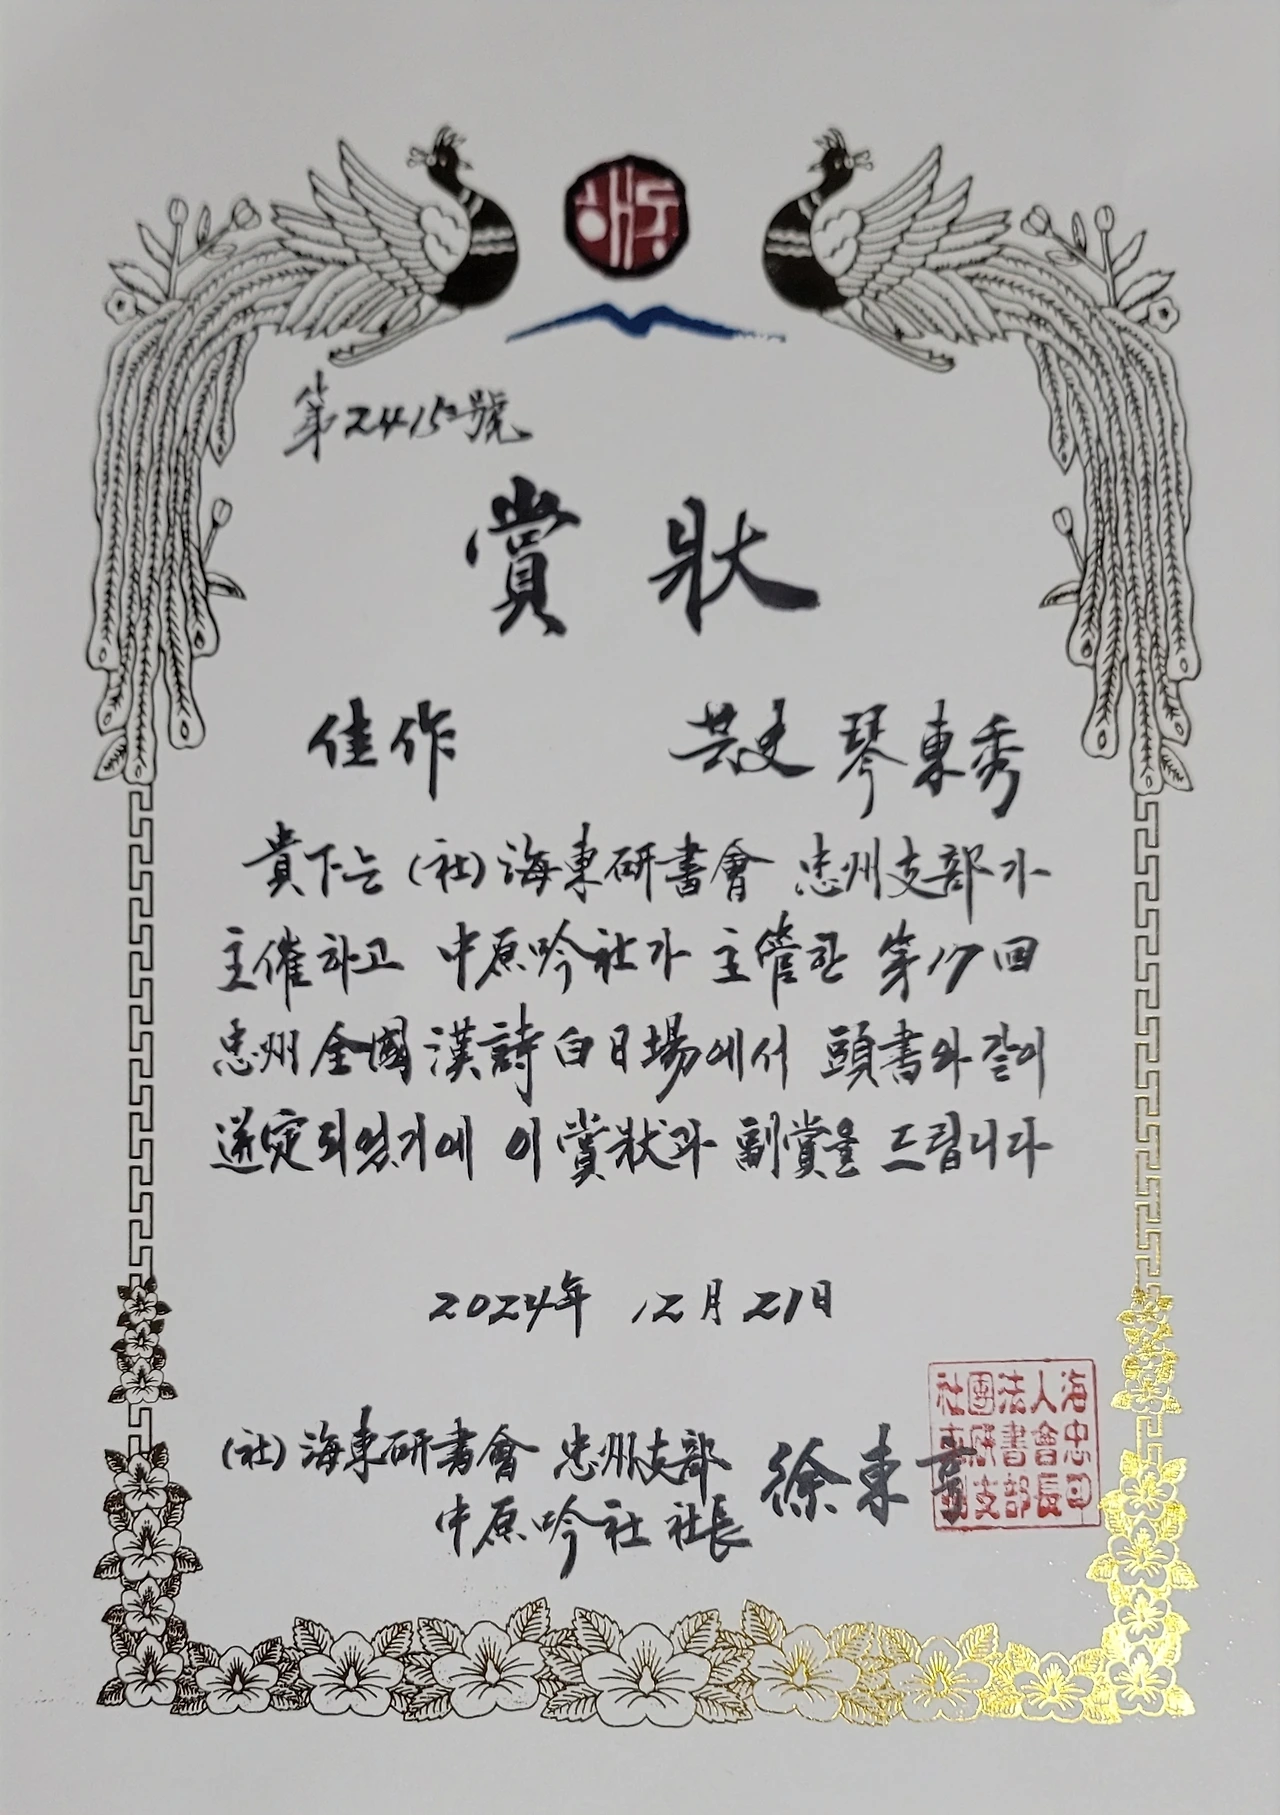 해동
第2415호號
賞狀
佳作 琴東秀
貴下는 (社)海東硏書會 忠州支部가
主催하고 中原吟社가 主管한 第17回
忠州全國漢詩白日場에서 頭書와 같이
選定되었기에 이 賞狀과 副賞을 드립니다
2024年 12月 21日
(社)海東硏書會 忠州支部
中原吟社 社長 徐東